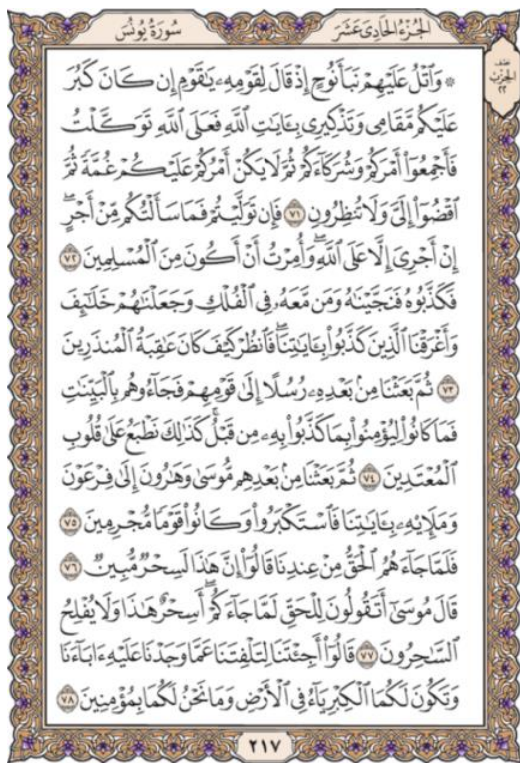 الجزء الحادي عشر
سورة يونس
نصف
الحزب
٢٢
۞ وَٱتۡلُ عَلَيۡهِمۡ نَبَأَ نُوحٍ إِذۡ قَالَ لِقَوۡمِهِۦ يَٰقَوۡمِ إِن كَانَ كَبُرَ
عَلَيۡكُم مَّقَامِي وَتَذۡكِيرِي بِـَٔايَٰتِ ٱللَّهِ فَعَلَى ٱللَّهِ تَوَكَّلۡتُ
فَأَجۡمِعُوٓاْ أَمۡرَكُمۡ وَشُرَكَآءَكُمۡ ثُمَّ لَا يَكُنۡ أَمۡرُكُمۡ عَلَيۡكُمۡ غُمَّةٗ ثُمَّ
ٱقۡضُوٓاْ إِلَيَّ وَلَا تُنظِرُونِ ٧١ فَإِن تَوَلَّيۡتُمۡ فَمَا سَأَلۡتُكُم مِّنۡ أَجۡرٍۖ
إِنۡ أَجۡرِيَ إِلَّا عَلَى ٱللَّهِۖ وَأُمِرۡتُ أَنۡ أَكُونَ مِنَ ٱلۡمُسۡلِمِينَ ٧٢
فَكَذَّبُوهُ فَنَجَّيۡنَٰهُ وَمَن مَّعَهُۥ فِي ٱلۡفُلۡكِ وَجَعَلۡنَٰهُمۡ خَلَٰٓئِفَ
وَأَغۡرَقۡنَا ٱلَّذِينَ كَذَّبُواْ بِـَٔايَٰتِنَاۖ فَٱنظُرۡ كَيۡفَ كَانَ عَٰقِبَةُ ٱلۡمُنذَرِينَ
٧٣ ثُمَّ بَعَثۡنَا مِنۢ بَعۡدِهِۦ رُسُلًا إِلَىٰ قَوۡمِهِمۡ فَجَآءُوهُم بِٱلۡبَيِّنَٰتِ
فَمَا كَانُواْ لِيُؤۡمِنُواْ بِمَا كَذَّبُواْ بِهِۦ مِن قَبۡلُۚ كَذَٰلِكَ نَطۡبَعُ عَلَىٰ قُلُوبِ
ٱلۡمُعۡتَدِينَ ٧٤ ثُمَّ بَعَثۡنَا مِنۢ بَعۡدِهِم مُّوسَىٰ وَهَٰرُونَ إِلَىٰ فِرۡعَوۡنَ
وَمَلَإِيْهِۦ بِـَٔايَٰتِنَا فَٱسۡتَكۡبَرُواْ وَكَانُواْ قَوۡمٗا مُّجۡرِمِينَ ٧٥
فَلَمَّا جَآءَهُمُ ٱلۡحَقُّ مِنۡ عِندِنَا قَالُوٓاْ إِنَّ هَٰذَا لَسِحۡرٞ مُّبِينٞ ٧٦
قَالَ مُوسَىٰٓ أَتَقُولُونَ لِلۡحَقِّ لَمَّا جَآءَكُمۡۖ أَسِحۡرٌ هَٰذَا وَلَا يُفۡلِحُ
ٱلسَّٰحِرُونَ ٧٧ قَالُوٓاْ أَجِئۡتَنَا لِتَلۡفِتَنَا عَمَّا وَجَدۡنَا عَلَيۡهِ ءَابَآءَنَا
وَتَكُونَ لَكُمَا ٱلۡكِبۡرِيَآءُ فِي ٱلۡأَرۡضِ وَمَا نَحۡنُ لَكُمَا بِمُؤۡمِنِينَ ٧٨
٢١٧